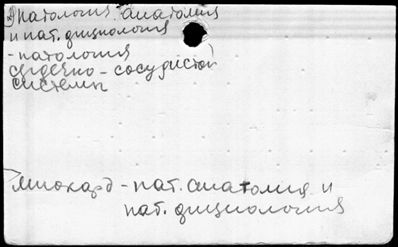 патология. анатомия
и пат. физиология
- патология
сердечно - сосудистой
системы
миокард - пат. анатомия и
пат. физиология